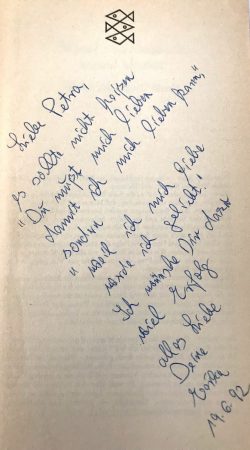 Liebe Petra,
es sollte nicht heißen
"Du mußt mich lieben
damit ich mich lieben kann,"
sondern
"weil ich mich liebe
werde ich geliebt."
Ich wünsche Dir dazu
viel Erfolg
alles Liebe
Deine
19.6.92